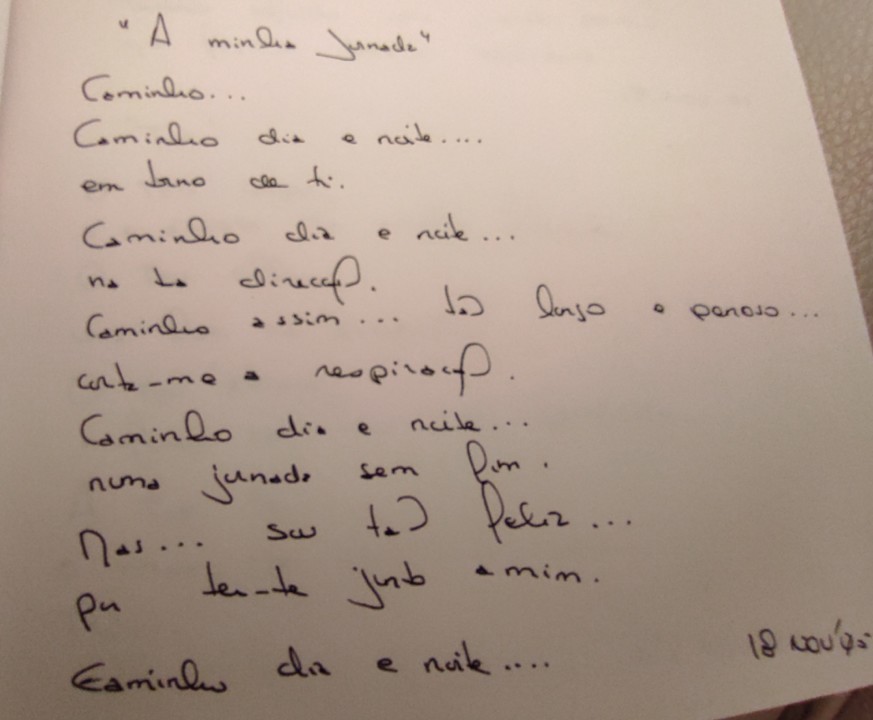 "A minha jornada"
Caminho...
Caminho dia e noite....
em torno de ti.
Caminho dia e noite...
na tua direcção.
Caminho assim... tão longo e penoso...
corta-me a respiração.
Caminho dia e noite...
numa jornada sem fim.
Mas... sou tão feliz...
por ter-te junto a mim.
Caminho dia e noite....
18 NOV'95